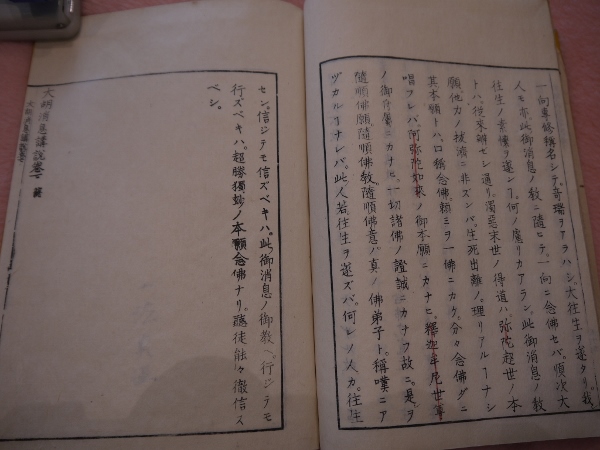 一向專修稱名シテ。奇瑞ヲアラハシ。大往生ヲ遂タリ。我
人モ亦此御消息ノ教ニ隨ヒテ。一向ニ念佛セバ。順次大
往生ノ素懷ヲ遂ン。何ノ慮リカアラン。此御消息ノ教
トハ。從來辨セシ通リ。濁惡末世ノ得道ハ。弥陀超世ノ本
願他力ノ拔濟ニ非ズンバ。生死出離ノ。理リアルコナシ
其本願トハ。口稱念佛。賴ミヲ一佛ニカケ。分々念佛グニ
唱フレバ阿弥陀如来ノ御本願ニカナヒ。釋迦牟尼世尊
ノ御付屬ニカナヒ。一切諸佛ノ證誠ニカナフ故ニ。是ヲ
隨順佛願。隨順佛教。隨順佛意ノ。真ノ佛弟子ト。稱嘆ニア
ヅカルコナレバ。此人若往生ヲ遂ズバ。何ンノ人カ。往生
セン。信ジテモ信ズベキハ。此御消息ノ御教ヘ。行ジテモ
行ズベキハ。超勝獨妙ノ本願念佛ナリ。聽徒能々徹信ス
ベシ。
大胡消息講説巻下 終
大胡消息講説巻下